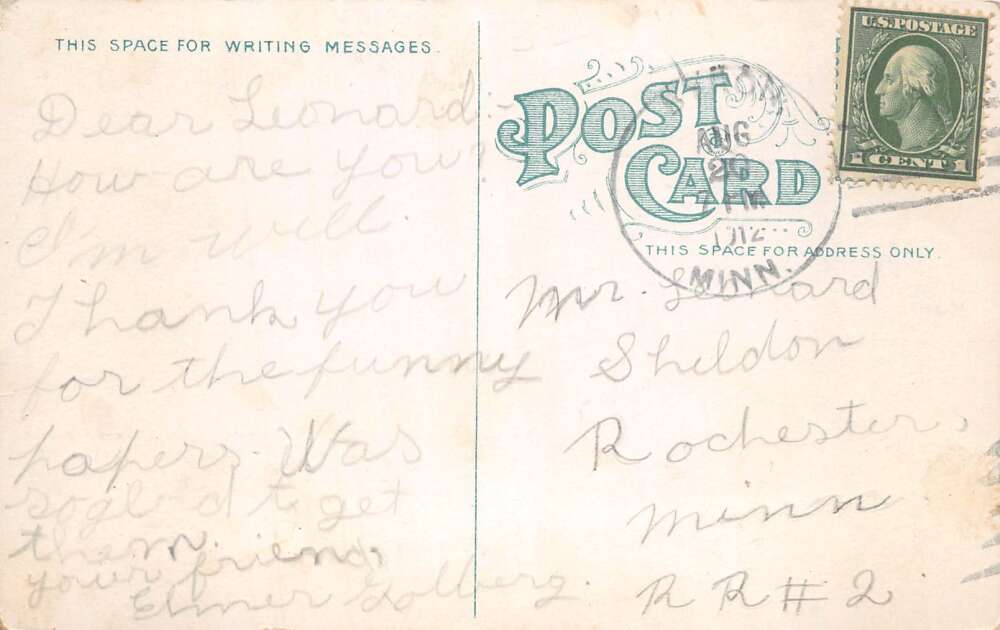 THIS SPACE FOR WRITING MESSAGES.
Dear Leonard:-
How are you?
I'm well.
Thank you
for the funny
papers. Was
so glad to get
them.
your friend,
Elmer Solberg.
POST
CARD
AUG
20
7 PM
1912
MINN.
THIS SPACE FOR ADDRESS ONLY.
U.S. POSTAGE
1 CENT 1
Mr. Leonard
Sheldon
Rochester,
Minn
RR#2